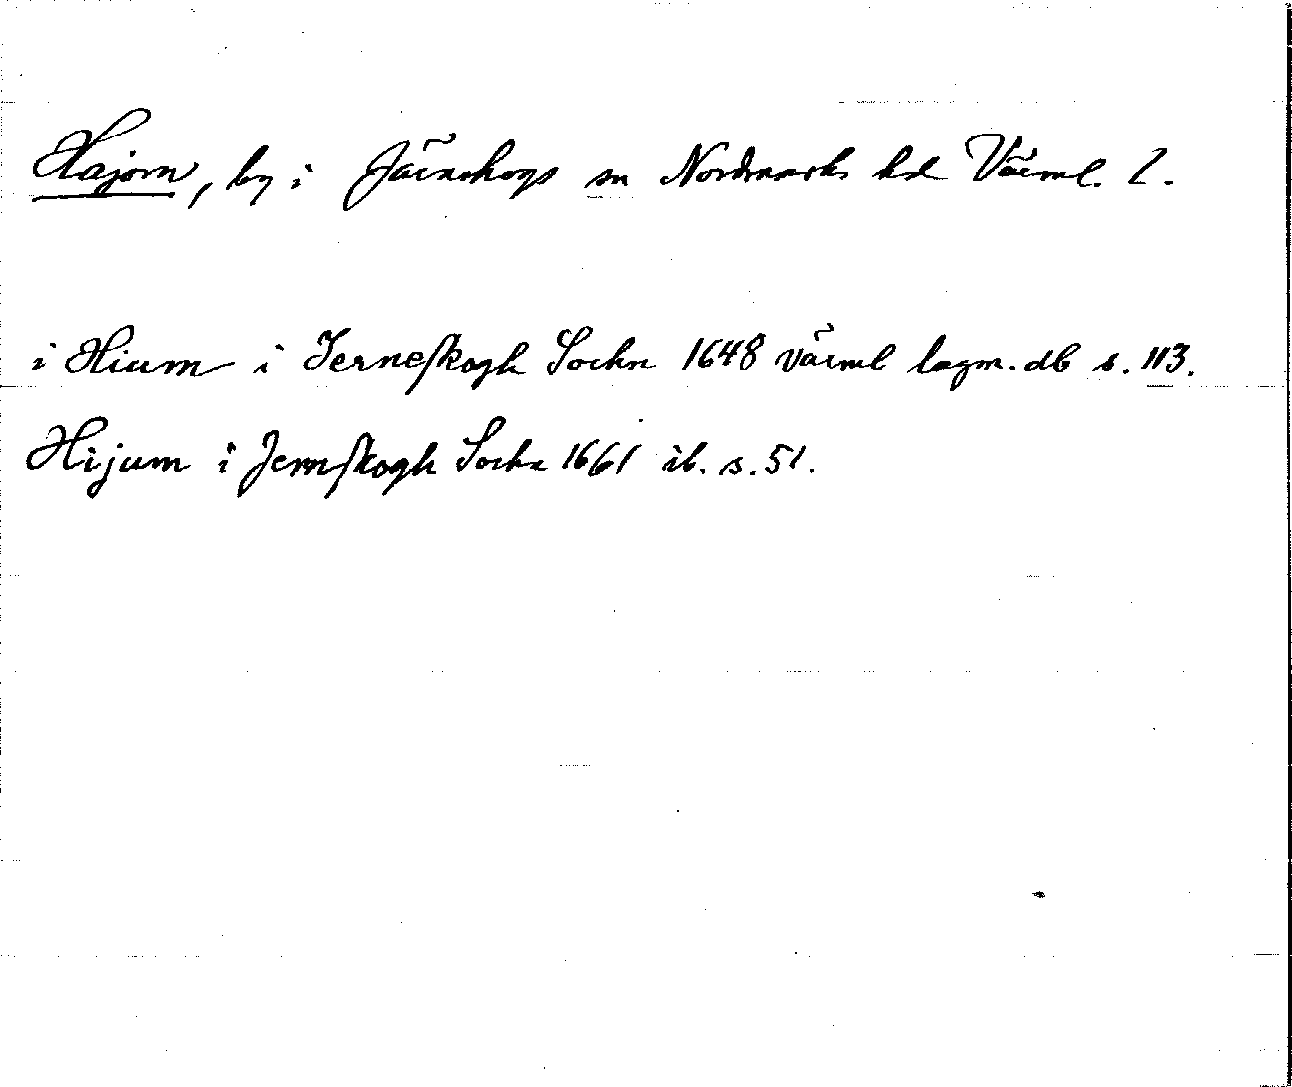 Hajom, by i Järnskogs sn Nordmarks hd Värml. l.
i Hium i Jerneskogh Sockn 1648 Värml lagm. db s. 113.
Hijum i Jernskogh Sockn 1661 ib. s. 51.